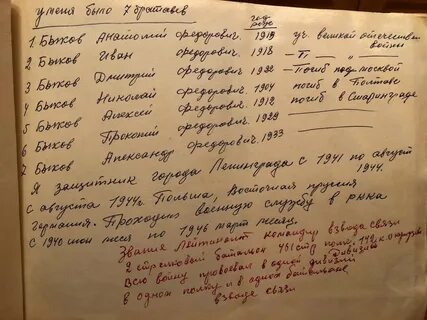 у меня было 7 братьев
год рож.
1 Быков Анатолий Федорович. 1919 уч. великой отечествен войны
2 Быков Иван Федорович. 1918 — П — „ —
3 Быков Дмитрий Федорович. 1922 — Погиб под москвой
4 Быков Николай Федорович. 1904 погиб в Полтаве
5 Быков Алексей Федорович. 1912 погиб в Сталинграде
6 Быков Прокопий Федорович. 1929
7 Быков Александр Федорович. 1933
Я защитник города Ленинграда с 1941 по август 1944.
с августа 1944г. Польша, Восточная пруссия
германия. Проходил военную службу в
с 1940 июн месяц по 1946 март месяц.
Звание Лейтенант командир взвода связи
2 стрелковый батальон 461 стр полк. 142 к
Всю войну провоевал в одной дивизии
в одном полку и в одном батальоне
взводе связи